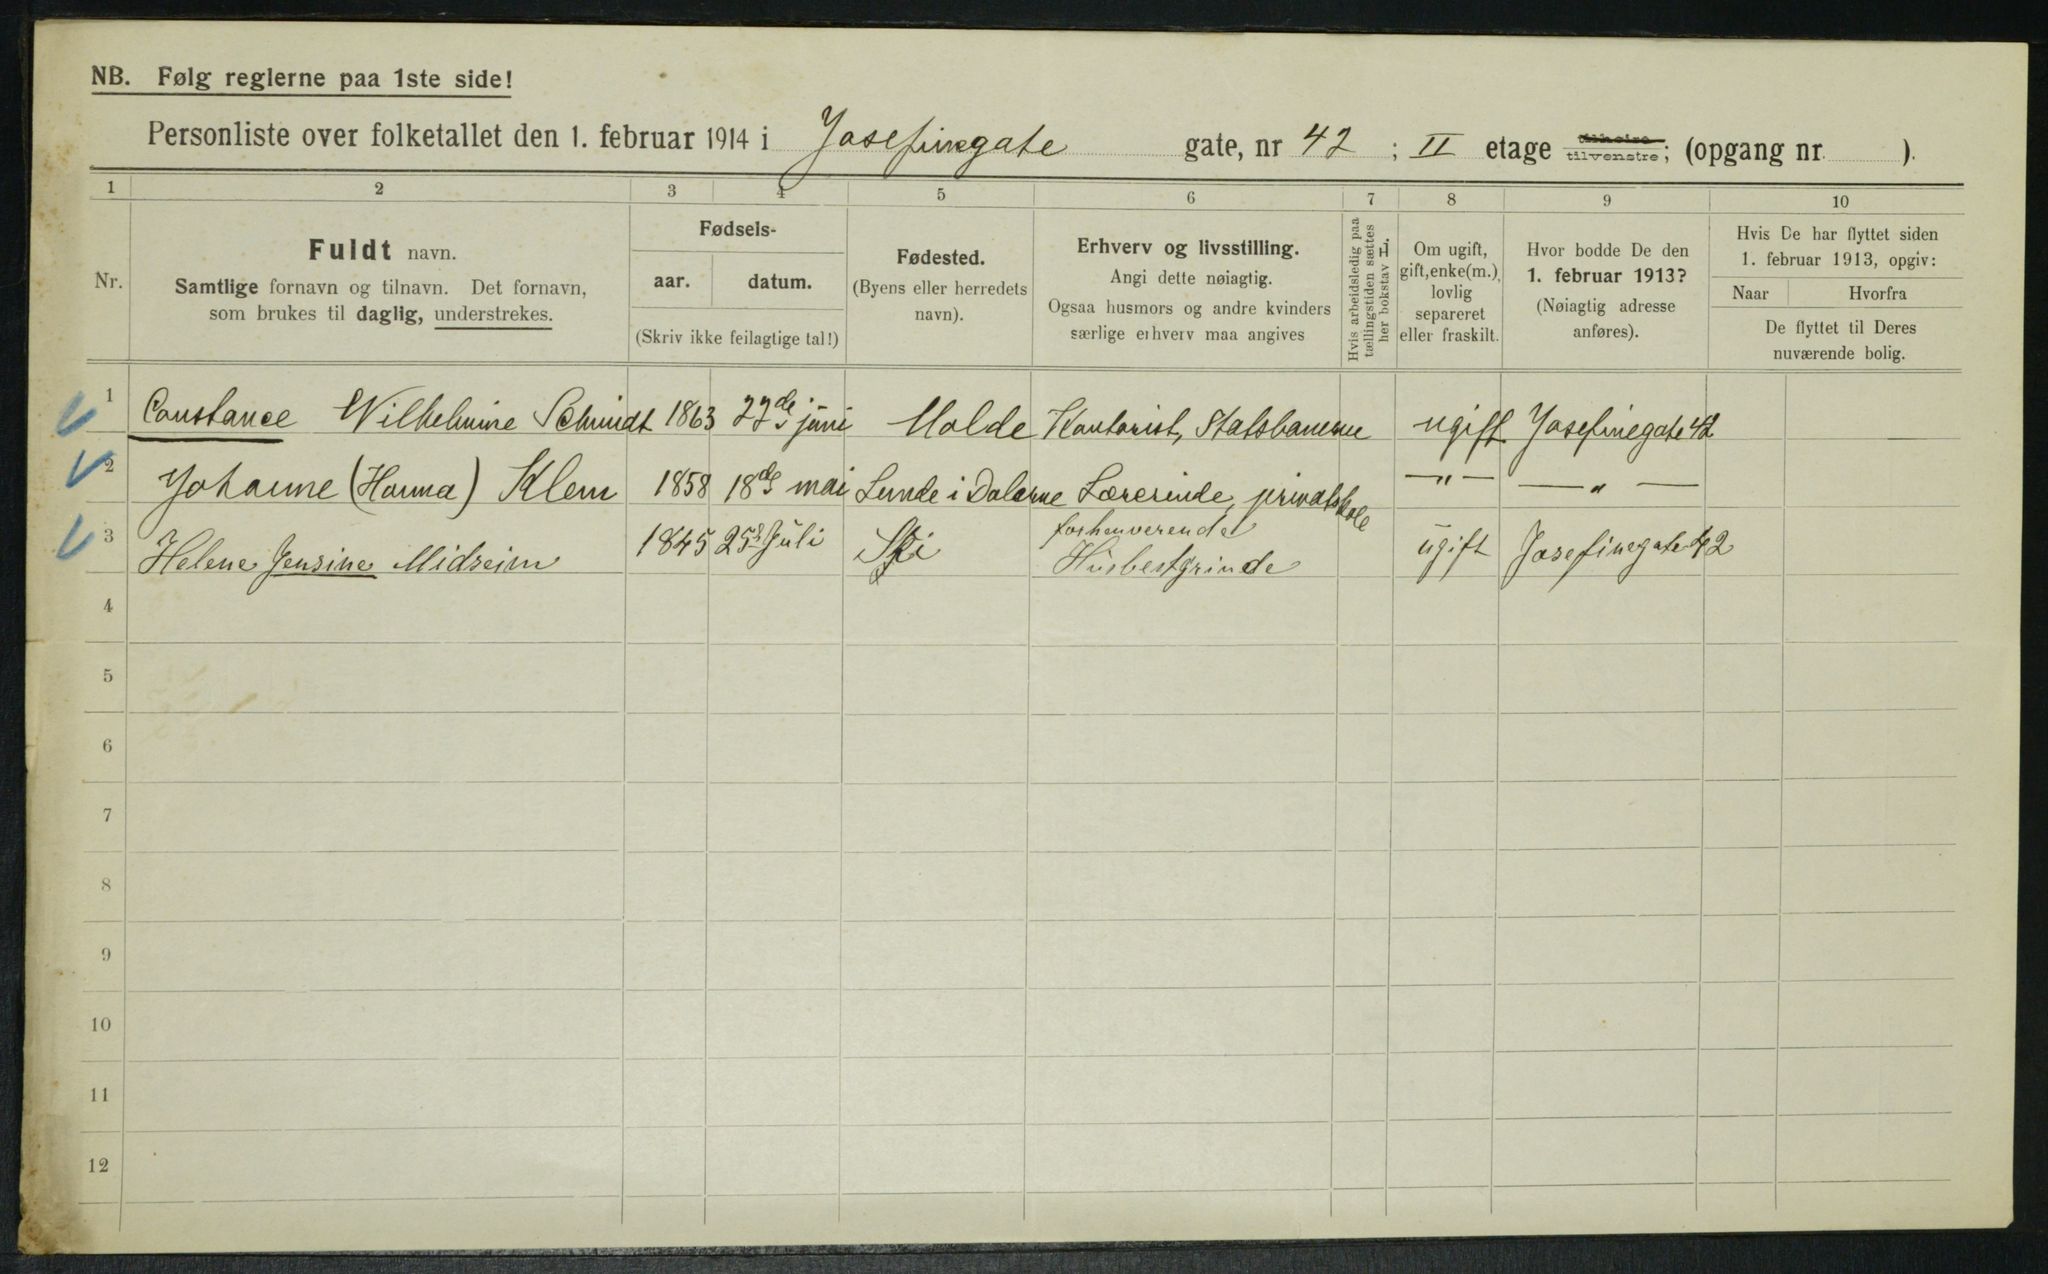 NB. Følg reglerne paa 1ste side!
Personliste over folketallet den 1. februar 1914 i Josefinegate gate, nr 42 ; II etage tilhøire tilvenstre; (opgang nr. ).
1 2 3 4 5 6 7 8 9 10
Nr.
Fuldt navn.
Samtlige fornavn og tilnavn. Det fornavn,
som brukes til daglig, understrekes.
Fødsels-
aar. datum.
(Skriv ikke feilagtige tal!)
Fødested.
(Byens eller herredets
navn).
Erhverv og livsstilling.
Angi dette nøiagtig.
Ogsaa husmors og andre kvinders
særlige erhverv maa angives
Hvis arbeidsledig paa
tællingstiden sættes
her bokstav L.
Om ugift,
gift, enke(m.),
lovlig
separeret
eller fraskilt.
Hvor bodde De den
1. februar 1913?
(Nøiagtig adresse
anføres).
Hvis De har flyttet siden
1. februar 1913, opgiv:
Naar Hvorfra
De flyttet til Deres
nuværende bolig.
1 Constance Wilhelmine Schmidt 1863 27de juni Molde Kontorist, Statsbanerne ugift Josefinegate 42
2 Johanne (Hanna) Klem 1858 18de mai Lunde i Dalerne Lærerinde, privatskole —"— —"—
3 Helene Jensine Midseim 1845 25d Juli Ski forhenverende Husbestyrinde ugift Josefinegate 42
4
5
6
7
8
9
10
11
12